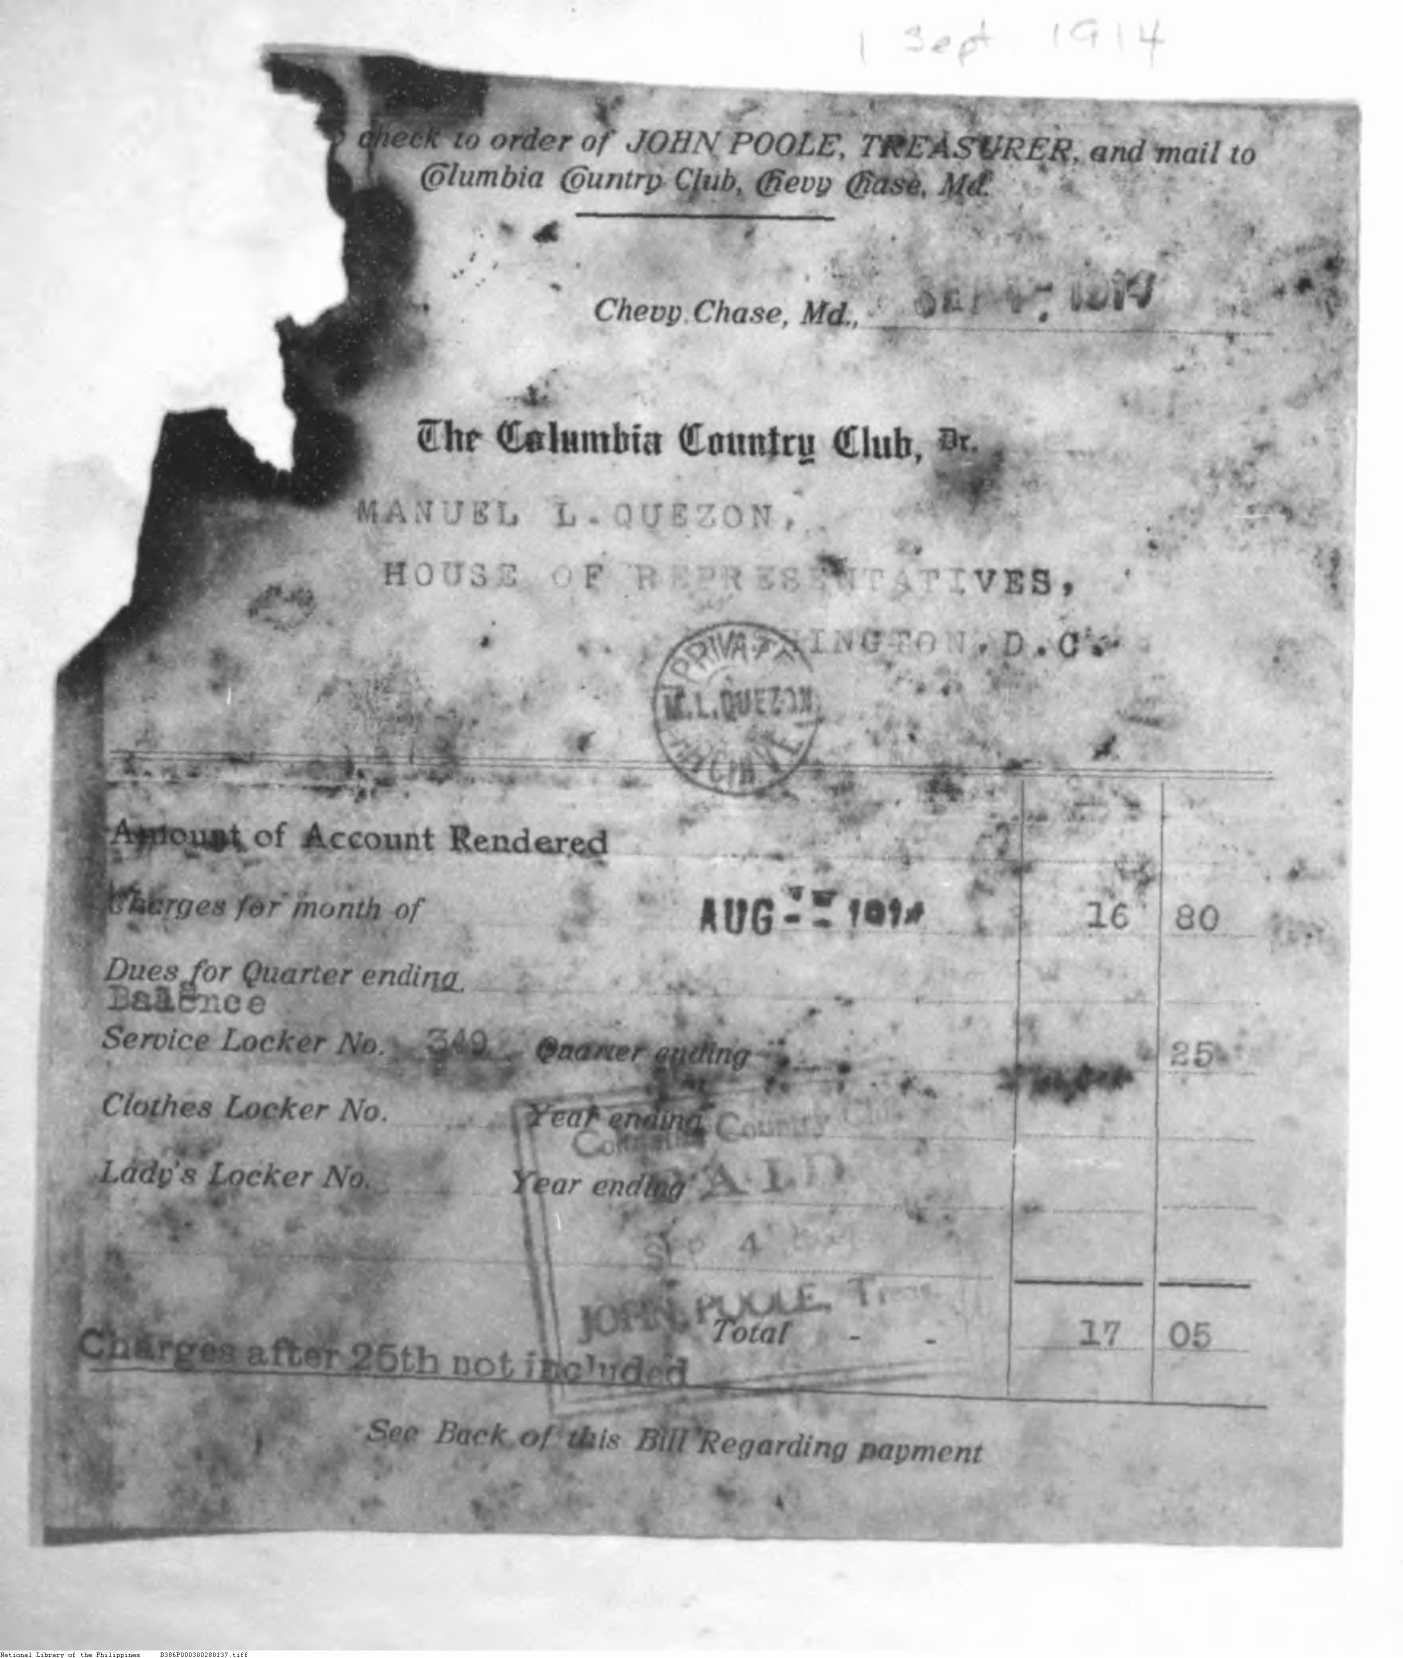 1 Sept 1914
check to order of JOHN POOLE, TREASURER, and mail to
Columbia Country Club, Chevy Chase, Md.
Chevy Chase, Md., SEP 1914
The Columbia Country Club, Dr.
MANUEL L. QUEZON,
HOUSE OF REPRESENTATIVES,
INGTON, D.C.
PRIVATE
M.L. QUEZON
ARCHIVE
Amount of Account Rendered
Charges for month of AUG 1914 16 80
Dues for Quarter ending
Balance
Service Locker No. 349 Quarter ending 25
Clothes Locker No. Year ending
Columbia Country Club
Lady's Locker No. Year ending
PAID
SEP 4
JOHN POOLE, Treas.
Total - - 17 05
Charges after 25th not included
See Back of this Bill Regarding payment
National Library of the Philippines B386P000300280137.tiff